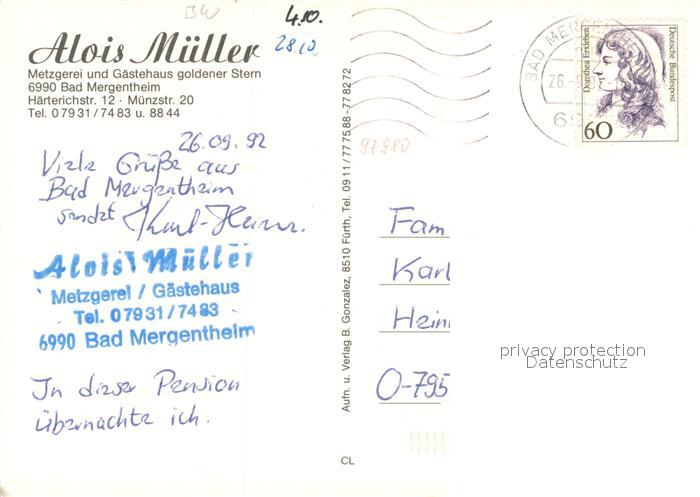 BW
4.10.
28.10.
Alois Müller
Metzgerei und Gästehaus goldener Stern
6990 Bad Mergentheim
Härterichstr. 12 · Münzstr. 20
Tel. 0 79 31 / 74 83 u. 88 44
26.09.92
Viele Grüße aus
Bad Mergentheim
sendet Karl-Heinz.
Alois Müller
Metzgerei / Gästehaus
Tel. 07931/7483
6990 Bad Mergentheim
In dieser Pension
übernachte ich.
Aufn. u. Verlag B. Gonzalez, 8510 Fürth, Tel. 09 11 / 77 75 88 - 77 82 72
CL
97980
BAD MER
26.
69
Dorothea Erxleben
Deutsche Bundespost
60
Fam
Karl
Hein
O-795
privacy protection
Datenschutz